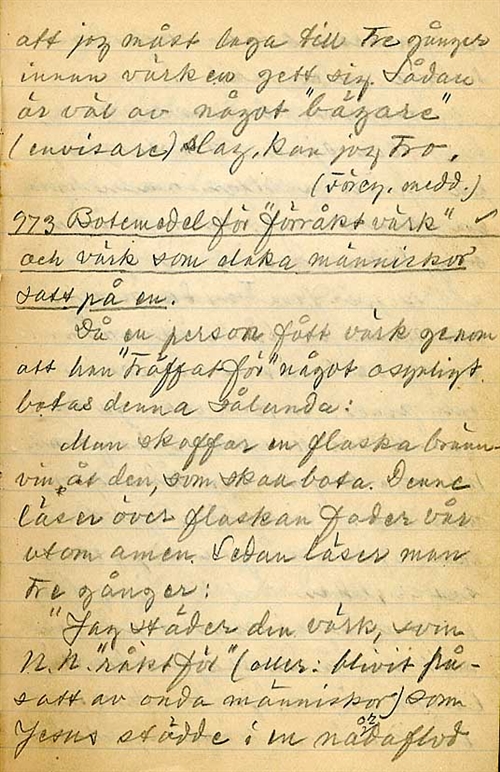 att jag måst laga till tre gånger
innan värken gett sig. Sådan
är väl av något "bägare"
(envisare) slag, kan jag tro.
(Föreg. medd.)
973 Botemedel för "förråkt värk" ✓
och värk som elaka människor
satt på en.
Då en person fått värk genom
att han "träffat för" något osynligt
botas denna sålunda:
Man skaffar en flaska bränn-
vin åt den, som skall bota. Denne
läser över flaskan fader vår
utom amen. Sedan läser man
tre gånger:
"Jag städer den värk, som
N.N. "råkt för" (eller: blivit på-
satt av onda människor) som
Jesus stödde i en